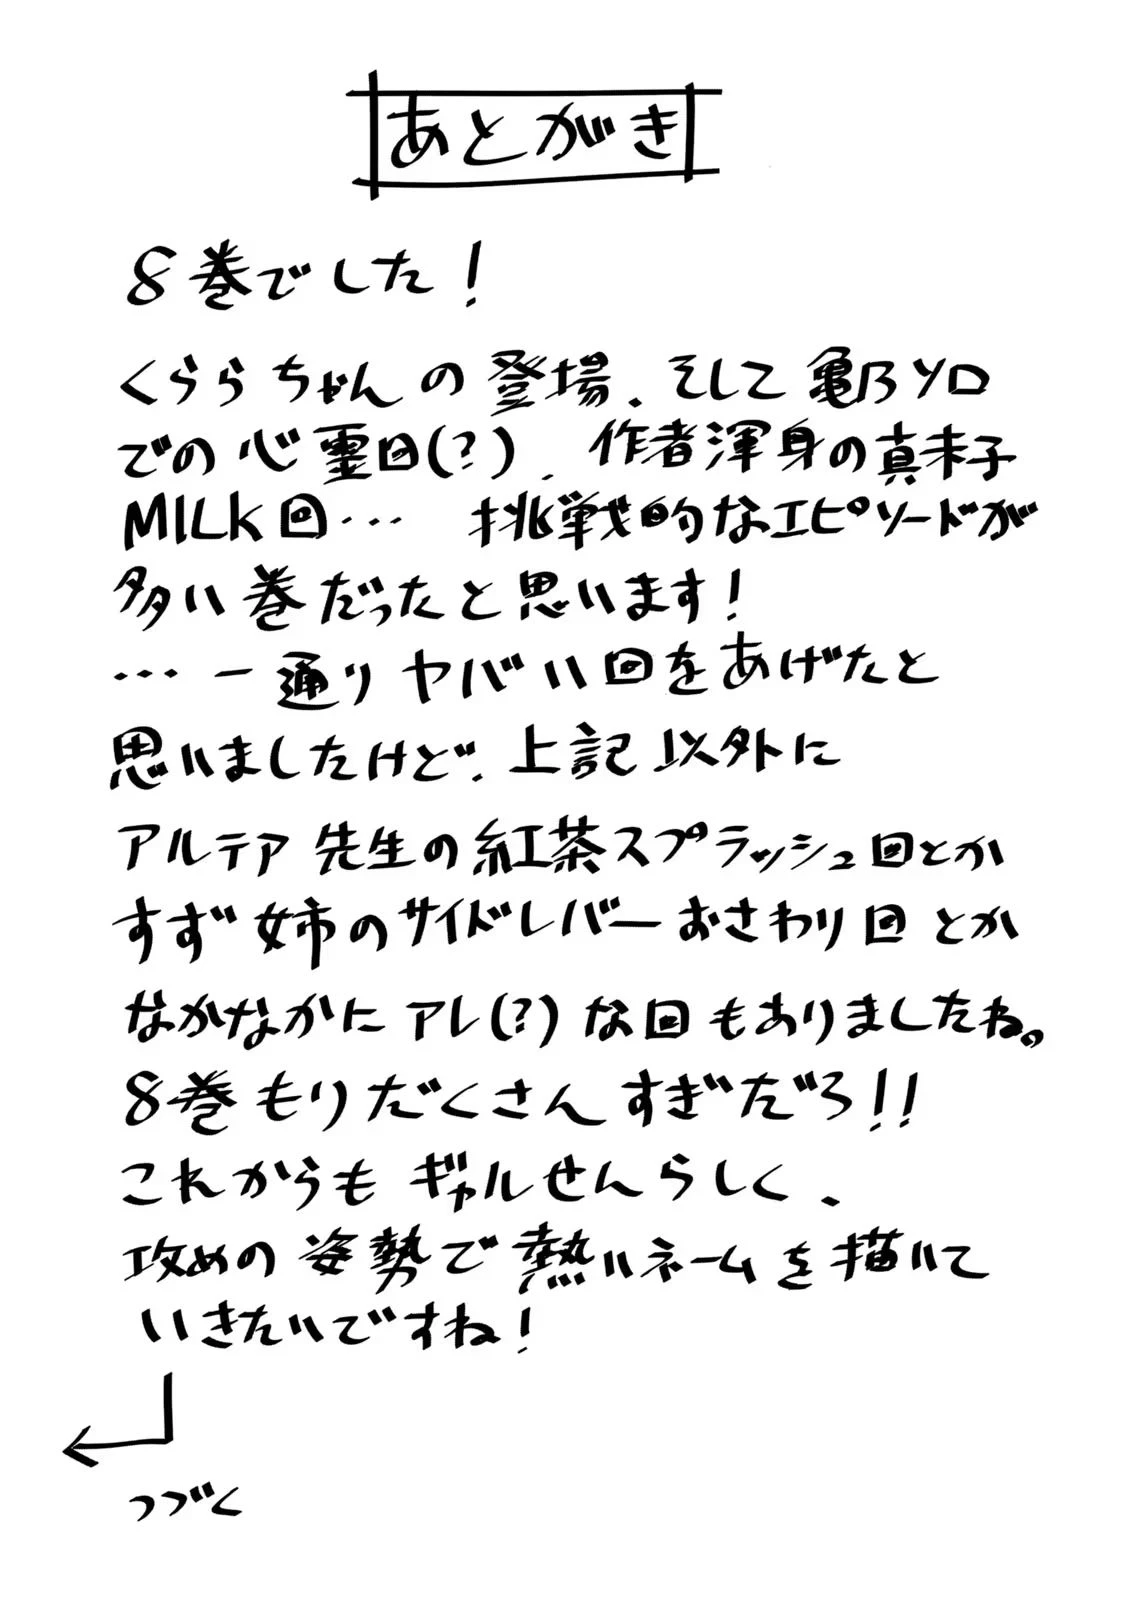 あとがき
8巻でした！
くららちゃんの登場、そして亀乃ソロ
での心霊回(?)、作者渾身の真未子
MILK回… 挑戦的なエピソードが
多い巻だったと思います！
…一通りヤバい回をあげたと
思いましたけど、上記以外に
アルテア先生の紅茶スプラッシュ回とか
すず姉のサイドレバーおさわり回とか
なかなかにアレ(?)な回もありましたね。
8巻もりだくさんすぎだろ!!
これからもギャルせんらしく、
攻めの姿勢で熱いネームを描いて
いきたいですね！
つづく